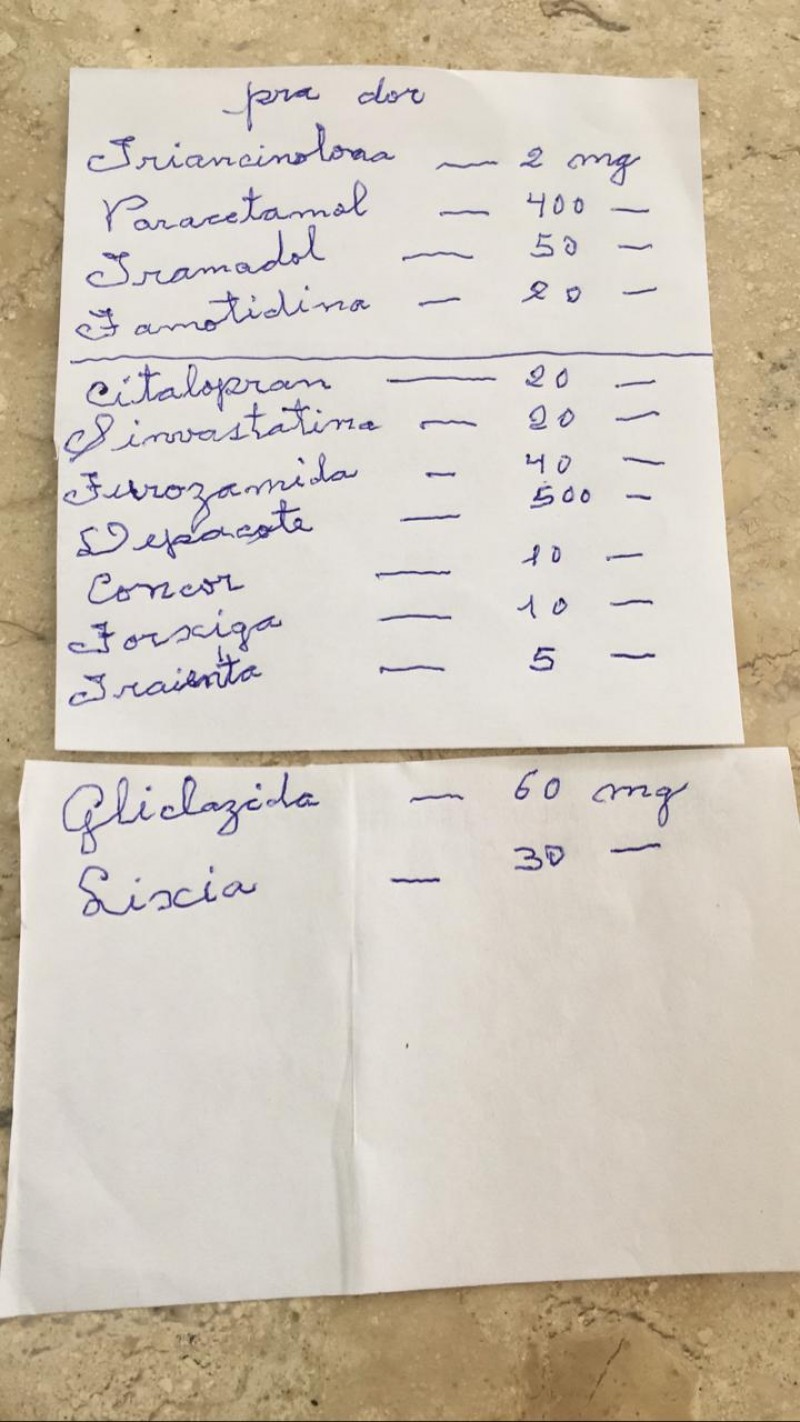 pra dor
Triancinolona — 2 mg
Paracetamol — 400 —
Tramadol — 50 —
Famotidina — 20 —
Citalopran — 20 —
Sinvastatina — 20 —
Furozamida — 40 —
Depacote — 500 —
Concor — 10 —
Forxiga — 10 —
Traienta — 5 —
Gliclazida — 60 mg
Lixia — 30 —